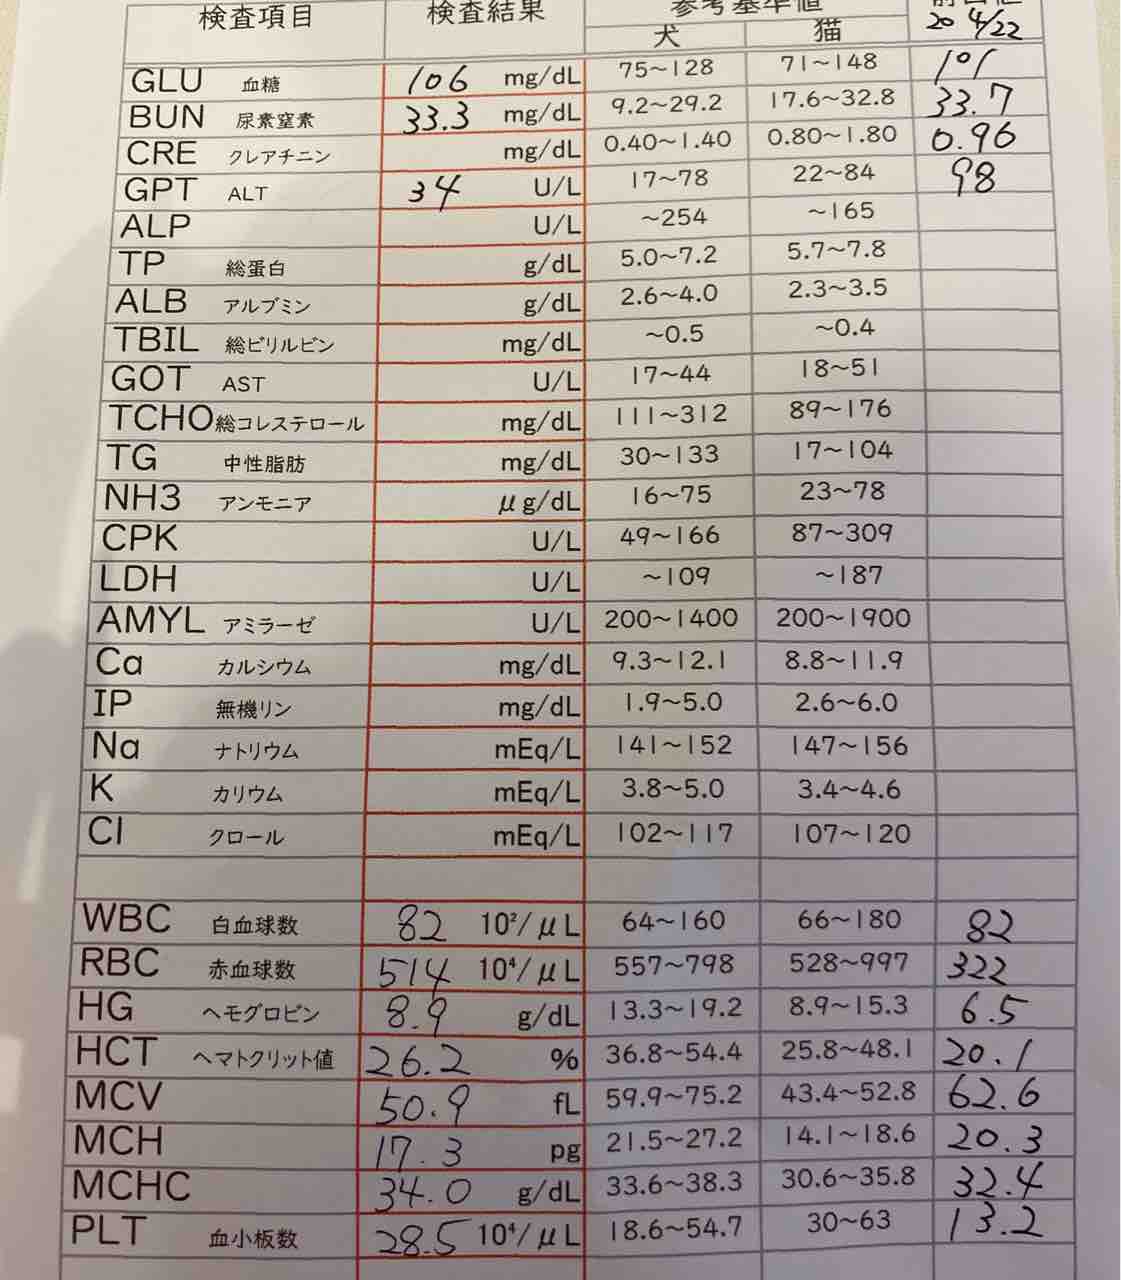 検査項目 検査結果 参考基準値
犬 猫 20 4/22
GLU 血糖 106 mg/dL 75~128 71~148 101
BUN 尿素窒素 33.3 mg/dL 9.2~29.2 17.6~32.8 33.7
CRE クレアチニン mg/dL 0.40~1.40 0.80~1.80 0.96
GPT ALT 34 U/L 17~78 22~84 98
ALP U/L ~254 ~165
TP 総蛋白 g/dL 5.0~7.2 5.7~7.8
ALB アルブミン g/dL 2.6~4.0 2.3~3.5
TBIL 総ビリルビン mg/dL ~0.5 ~0.4
GOT AST U/L 17~44 18~51
TCHO 総コレステロール mg/dL 111~312 89~176
TG 中性脂肪 mg/dL 30~133 17~104
NH3 アンモニア μg/dL 16~75 23~78
CPK U/L 49~166 87~309
LDH U/L ~109 ~187
AMYL アミラーゼ U/L 200~1400 200~1900
Ca カルシウム mg/dL 9.3~12.1 8.8~11.9
IP 無機リン mg/dL 1.9~5.0 2.6~6.0
Na ナトリウム mEq/L 141~152 147~156
K カリウム mEq/L 3.8~5.0 3.4~4.6
Cl クロール mEq/L 102~117 107~120
WBC 白血球数 82 10²/μL 64~160 66~180 82
RBC 赤血球数 514 10⁴/μL 557~798 528~997 322
HG ヘモグロビン 8.9 g/dL 13.3~19.2 8.9~15.3 6.5
HCT ヘマトクリット値 26.2 % 36.8~54.4 25.8~48.1 20.1
MCV 50.9 fL 59.9~75.2 43.4~52.8 62.6
MCH 17.3 pg 21.5~27.2 14.1~18.6 20.3
MCHC 34.0 g/dL 33.6~38.3 30.6~35.8 32.4
PLT 血小板数 28.5 10⁴/μL 18.6~54.7 30~63 13.2